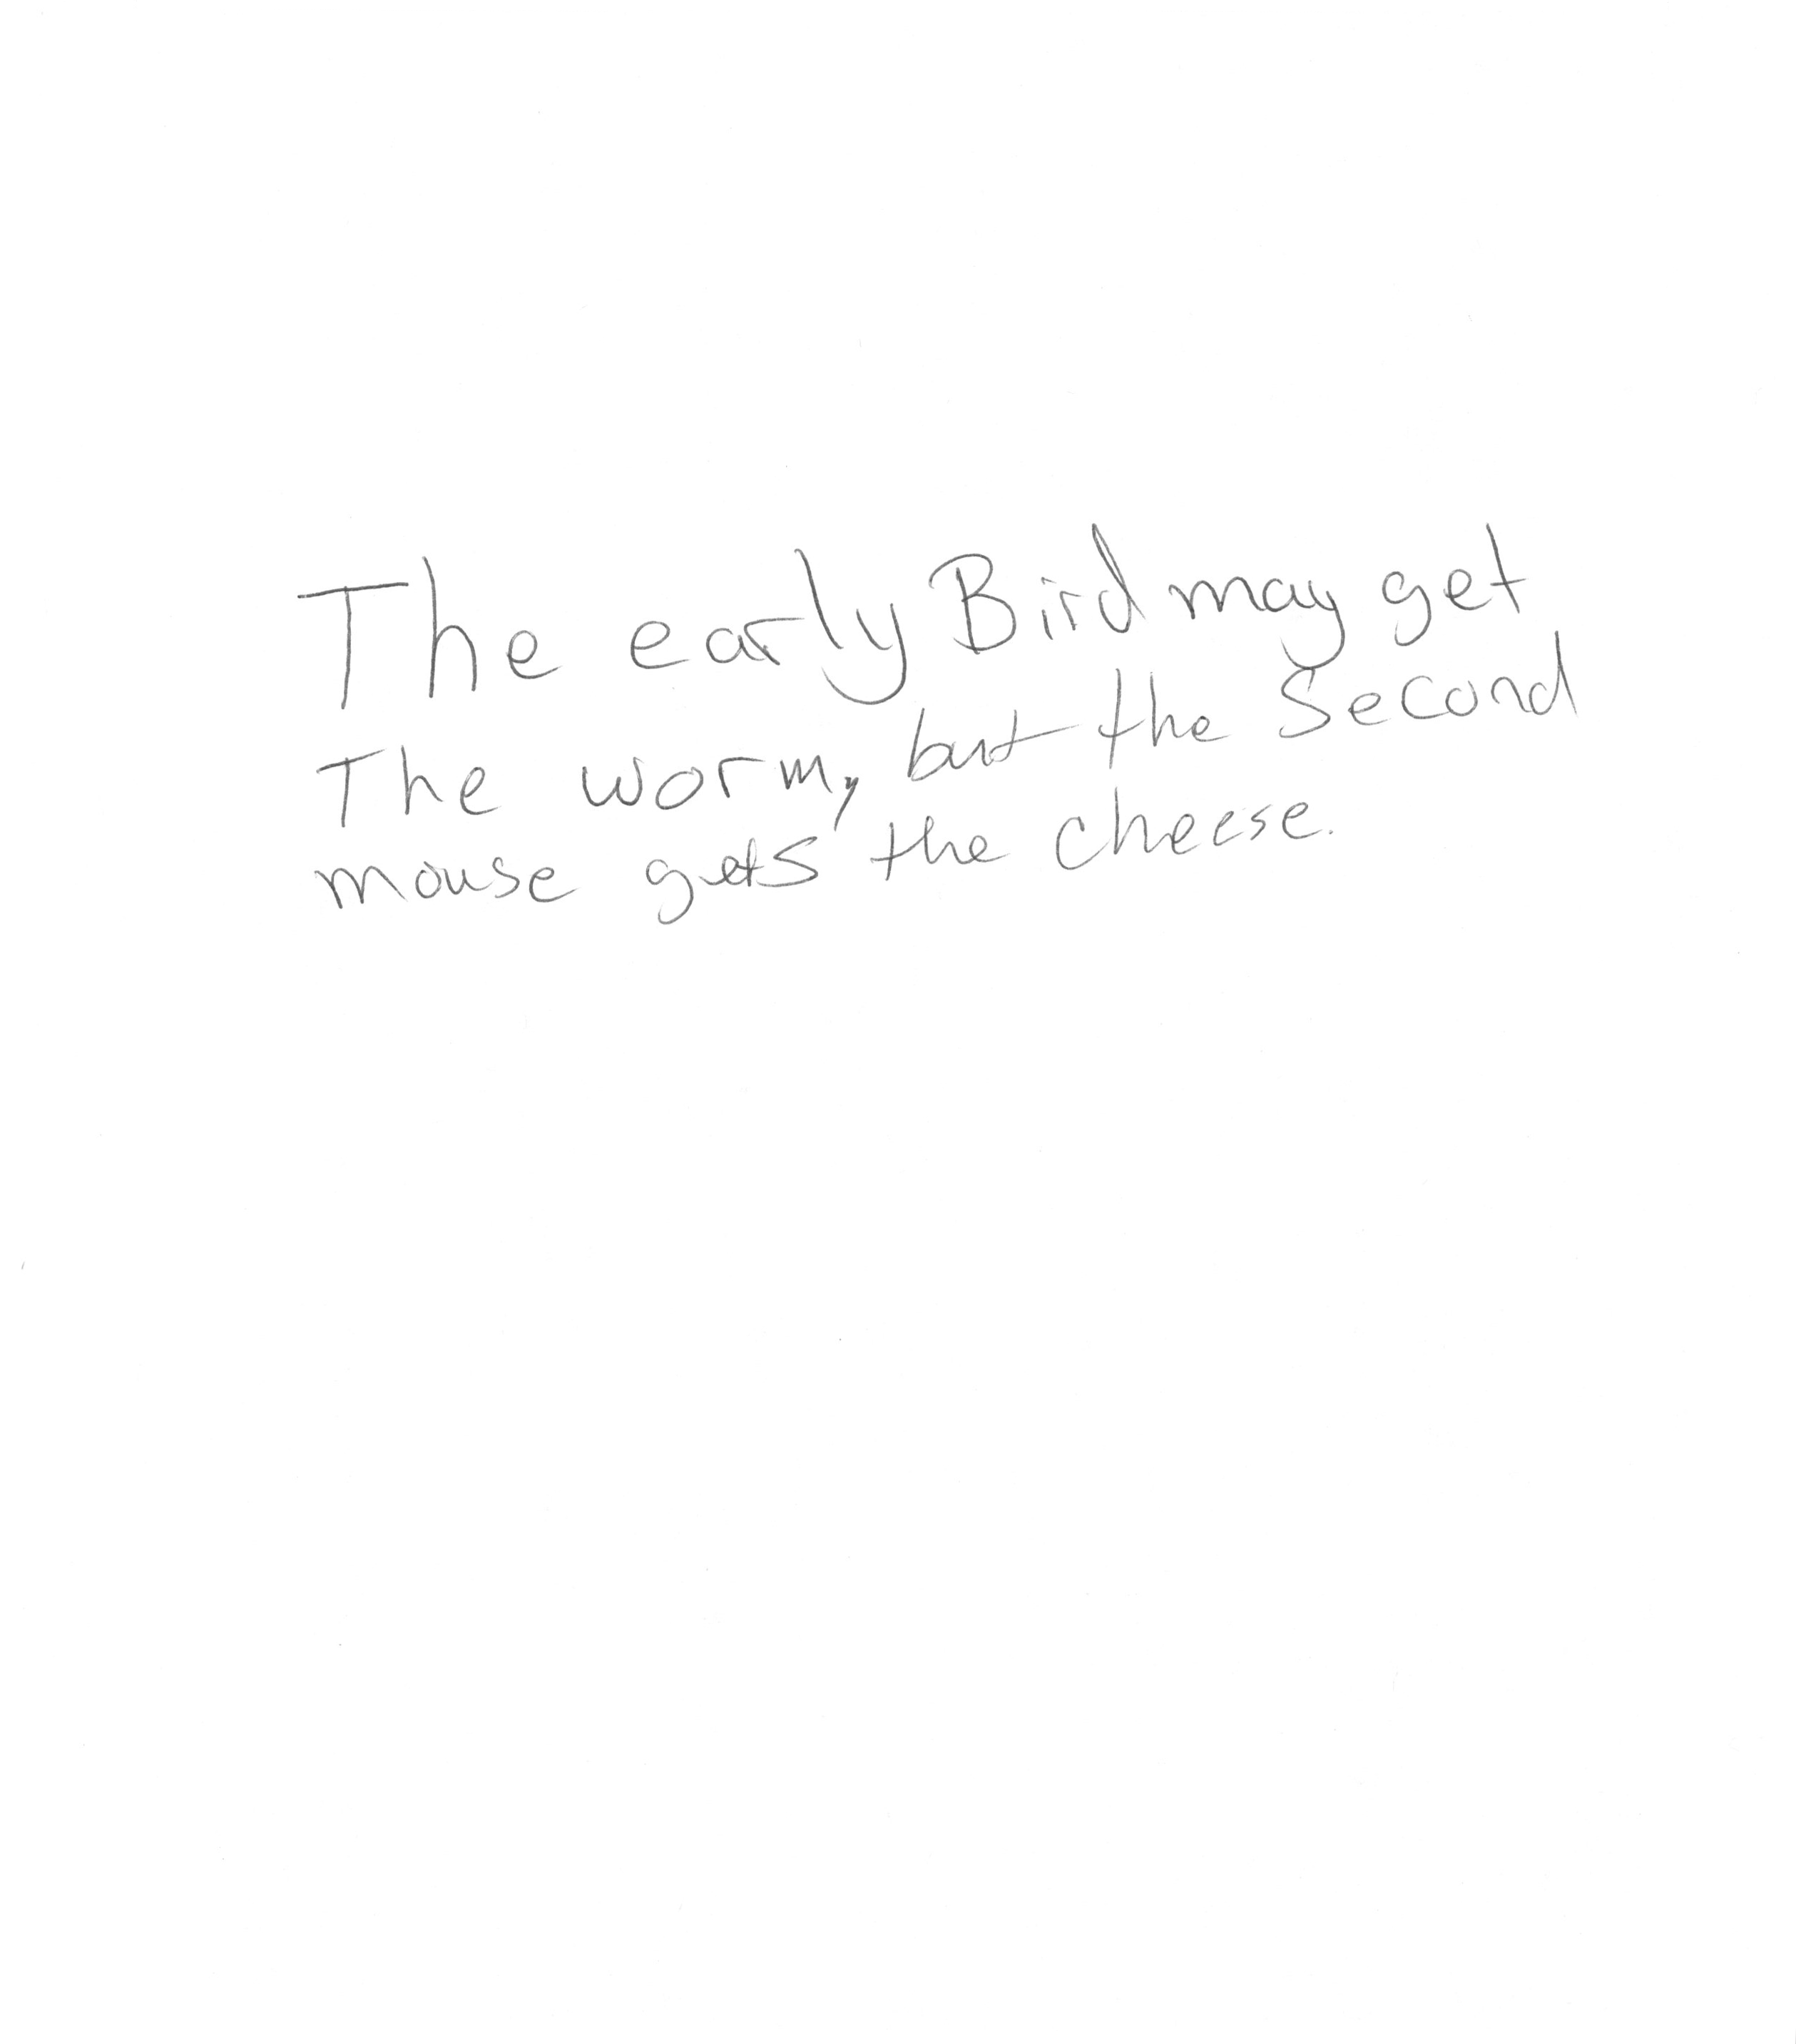 The early Bird may get
The worm, but the Second
mouse gets the cheese.